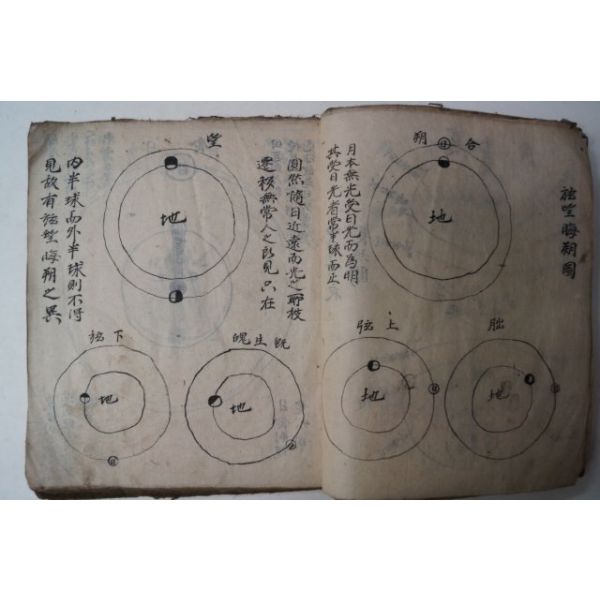 弦望晦朔圖
合朔
日
地
月本無光受日光而為明
其受日光者常半球而止
朏
日
地
上弦
日
地
圓然隨日近遠而光之所
遷移無常人之所見只在
望
地
內半球而外半球則不得
見故有弦望晦朔之異
既生魄
日
地
下弦
日
地